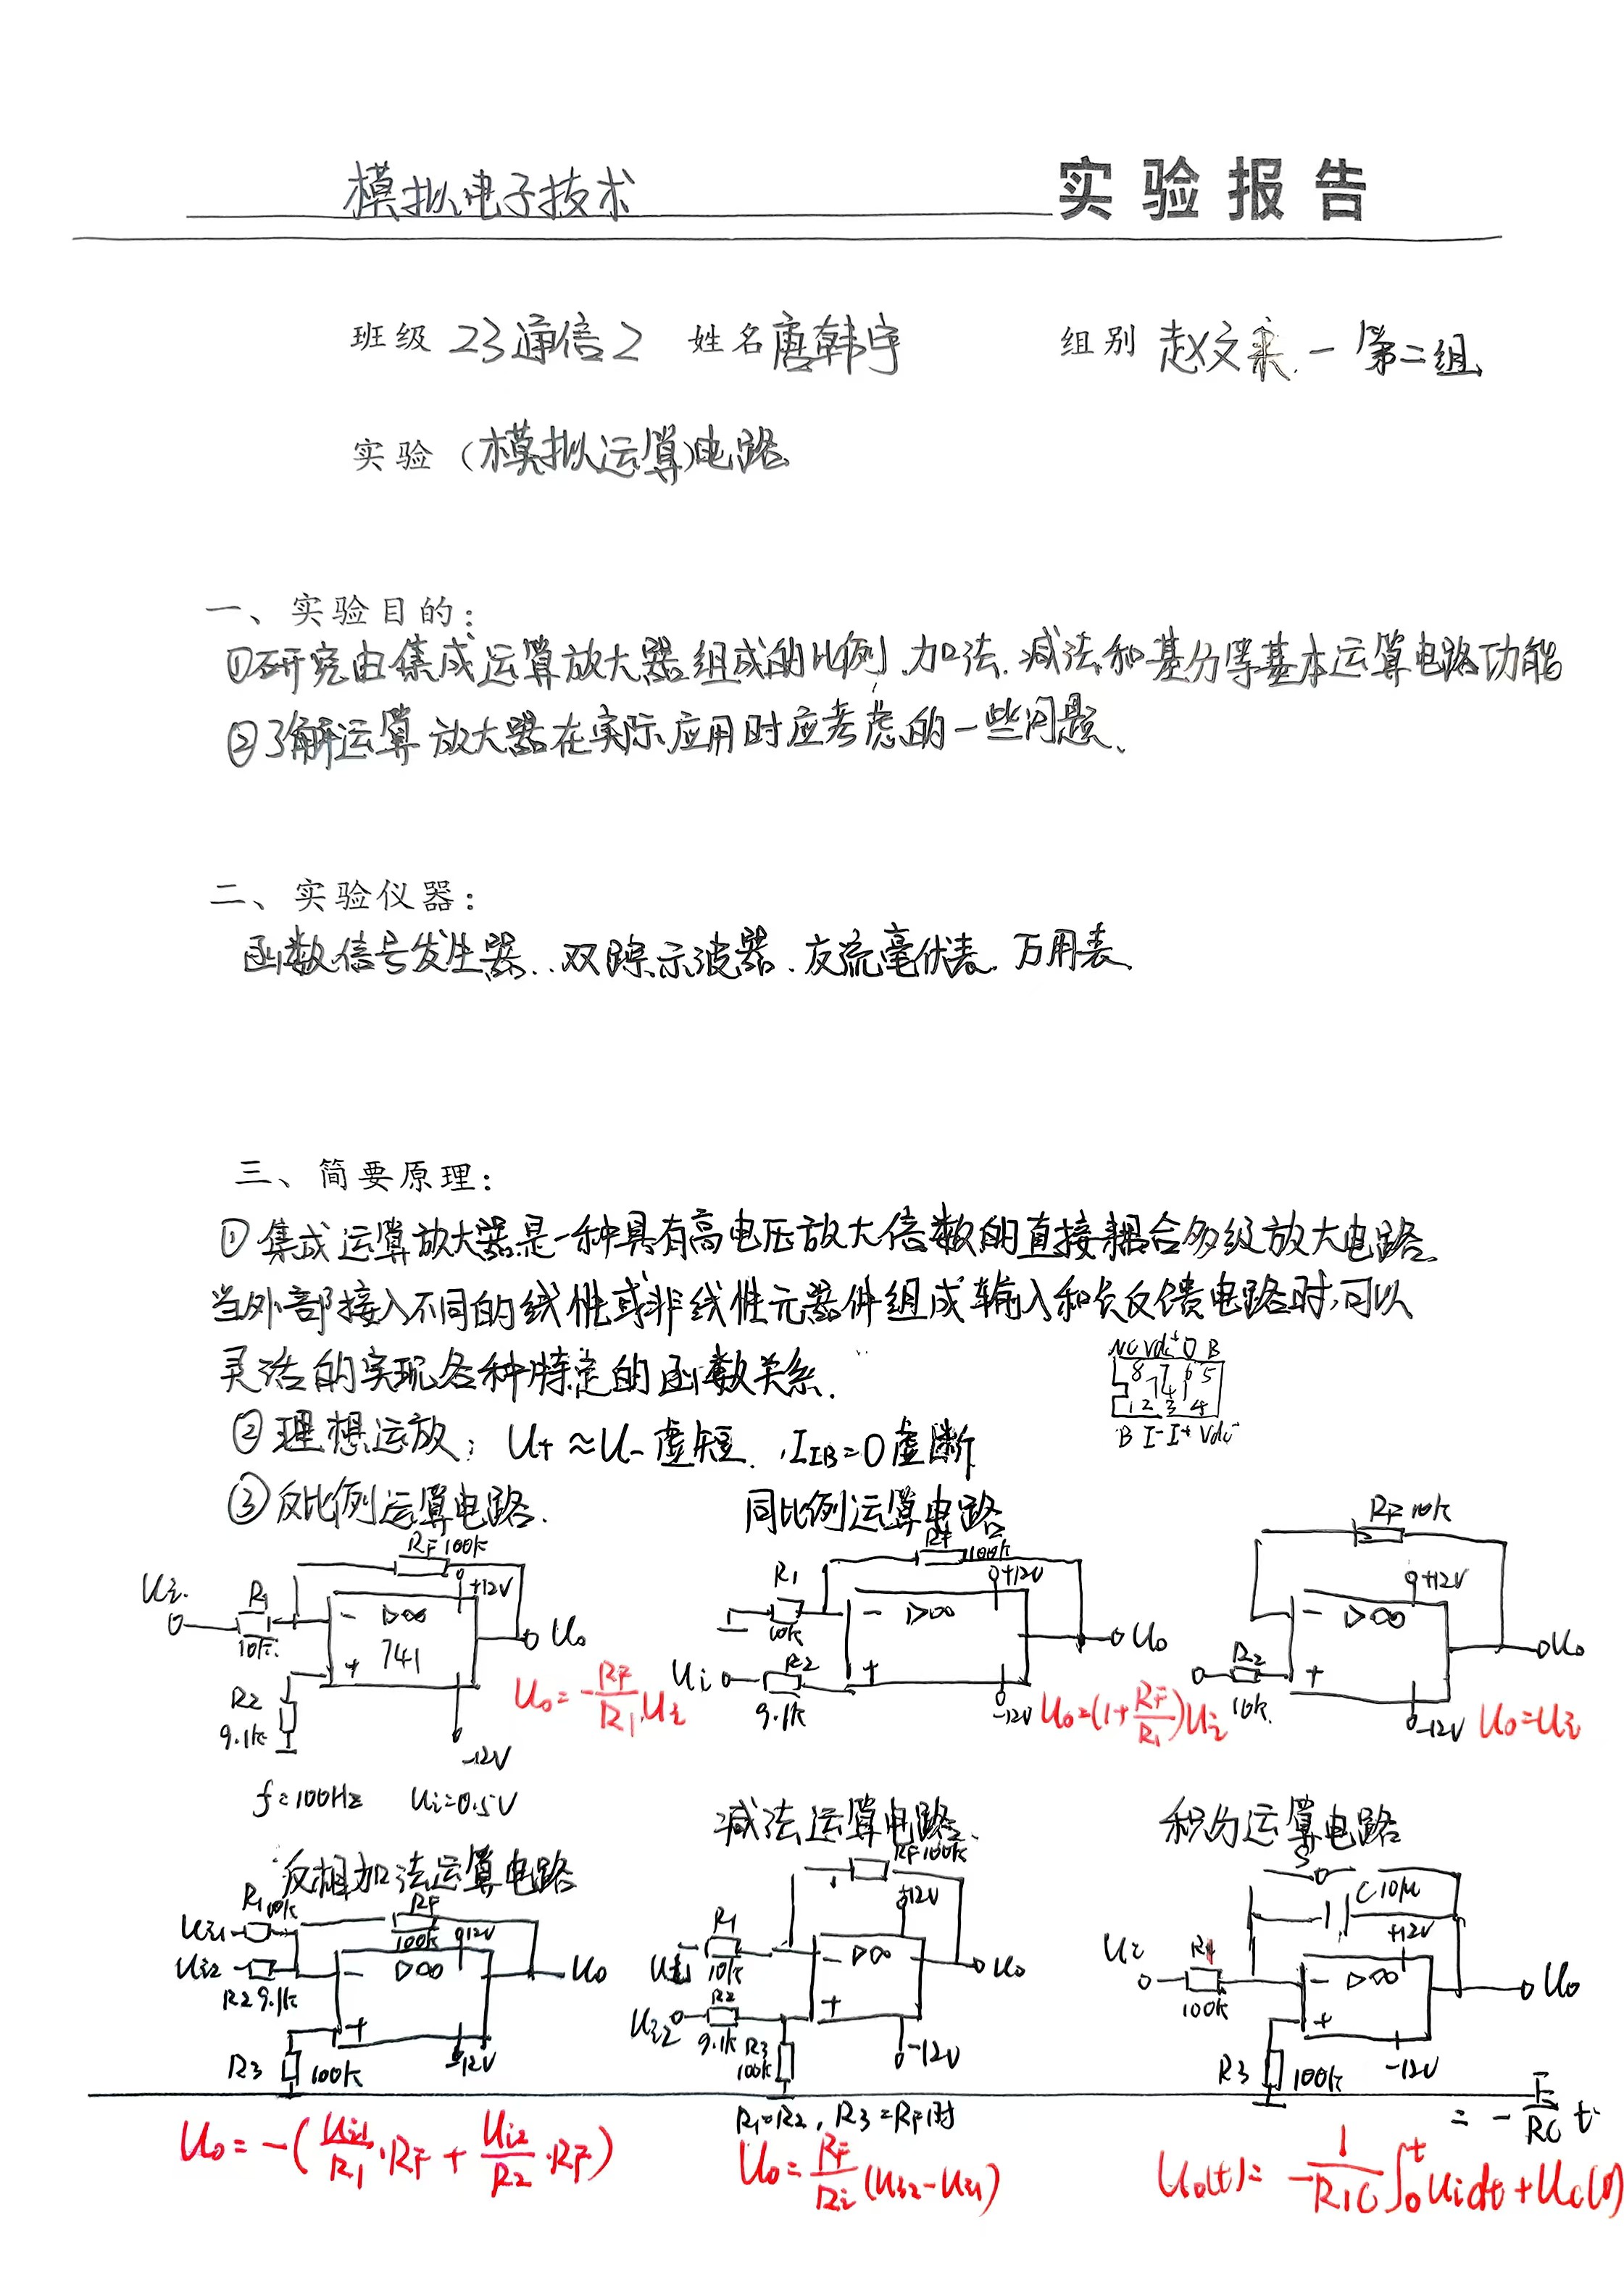 模拟电子技术 实验报告
班级 23通信2 姓名 唐韩宇 组别 赵文 一 第二组
实验(模拟运算)电路
一、实验目的:
①研究由集成运算放大器组成的比例、加法、减法和基分等基本运算电路功能
②了解运算放大器在实际应用时应考虑的一些问题.
二、实验仪器:
函数信号发生器..双踪示波器.交流毫伏表.万用表.
三、简要原理:
①集成运算放大器是一种具有高电压放大倍数的直接耦合多级放大电路.
当外部接入不同的线性或非线性元器件组成输入和负反馈电路时,可以
灵活的实现各种特定的函数关系.
NC Vdc+ O B
8 7 6 5
741
1 2 3 4
B I- I+ Vdc-
②理想运放: U+≈U- 虚短. IIB=0虚断
③反比例运算电路.
RF 100k
Ui
R1
10k
R2
9.1k
+12V
- ▷∞
741
+
-12V
Uo
Uo=-RF/R1·Ui
f=100Hz Ui=0.5V
同比例运算电路
RF
100k
R1
10k
Ui
R2
9.1k
+12V
- ▷∞
+
-12V
Uo
Uo=(1+RF/R1)Ui
RF 10k
+12V
- ▷∞
R2
10k
+
-12V
Uo
Uo=Ui
反相加法运算电路
R1 10k
RF
100k
Ui1
Ui2
R2 9.1k
12V
- ▷∞
+
-12V
R3 100k
Uo
Uo=-(Ui1/R1·RF+Ui2/R2·RF)
减法运算电路.
RF 100k
+12V
R1
10k
Ui1
R2
Ui2
9.1k
R3
100k
- ▷∞
+
-12V
Uo
R1=R2, R3=RF时
Uo=RF/Ri(Ui2-Ui1)
积分运算电路
S
C 10μ
+12V
Ui
100k
- ▷∞
+
-12V
R3 100k
Uo
=-E/RC t
Uo(t)=-1/R1C∫0t Uidt+Uc(0)